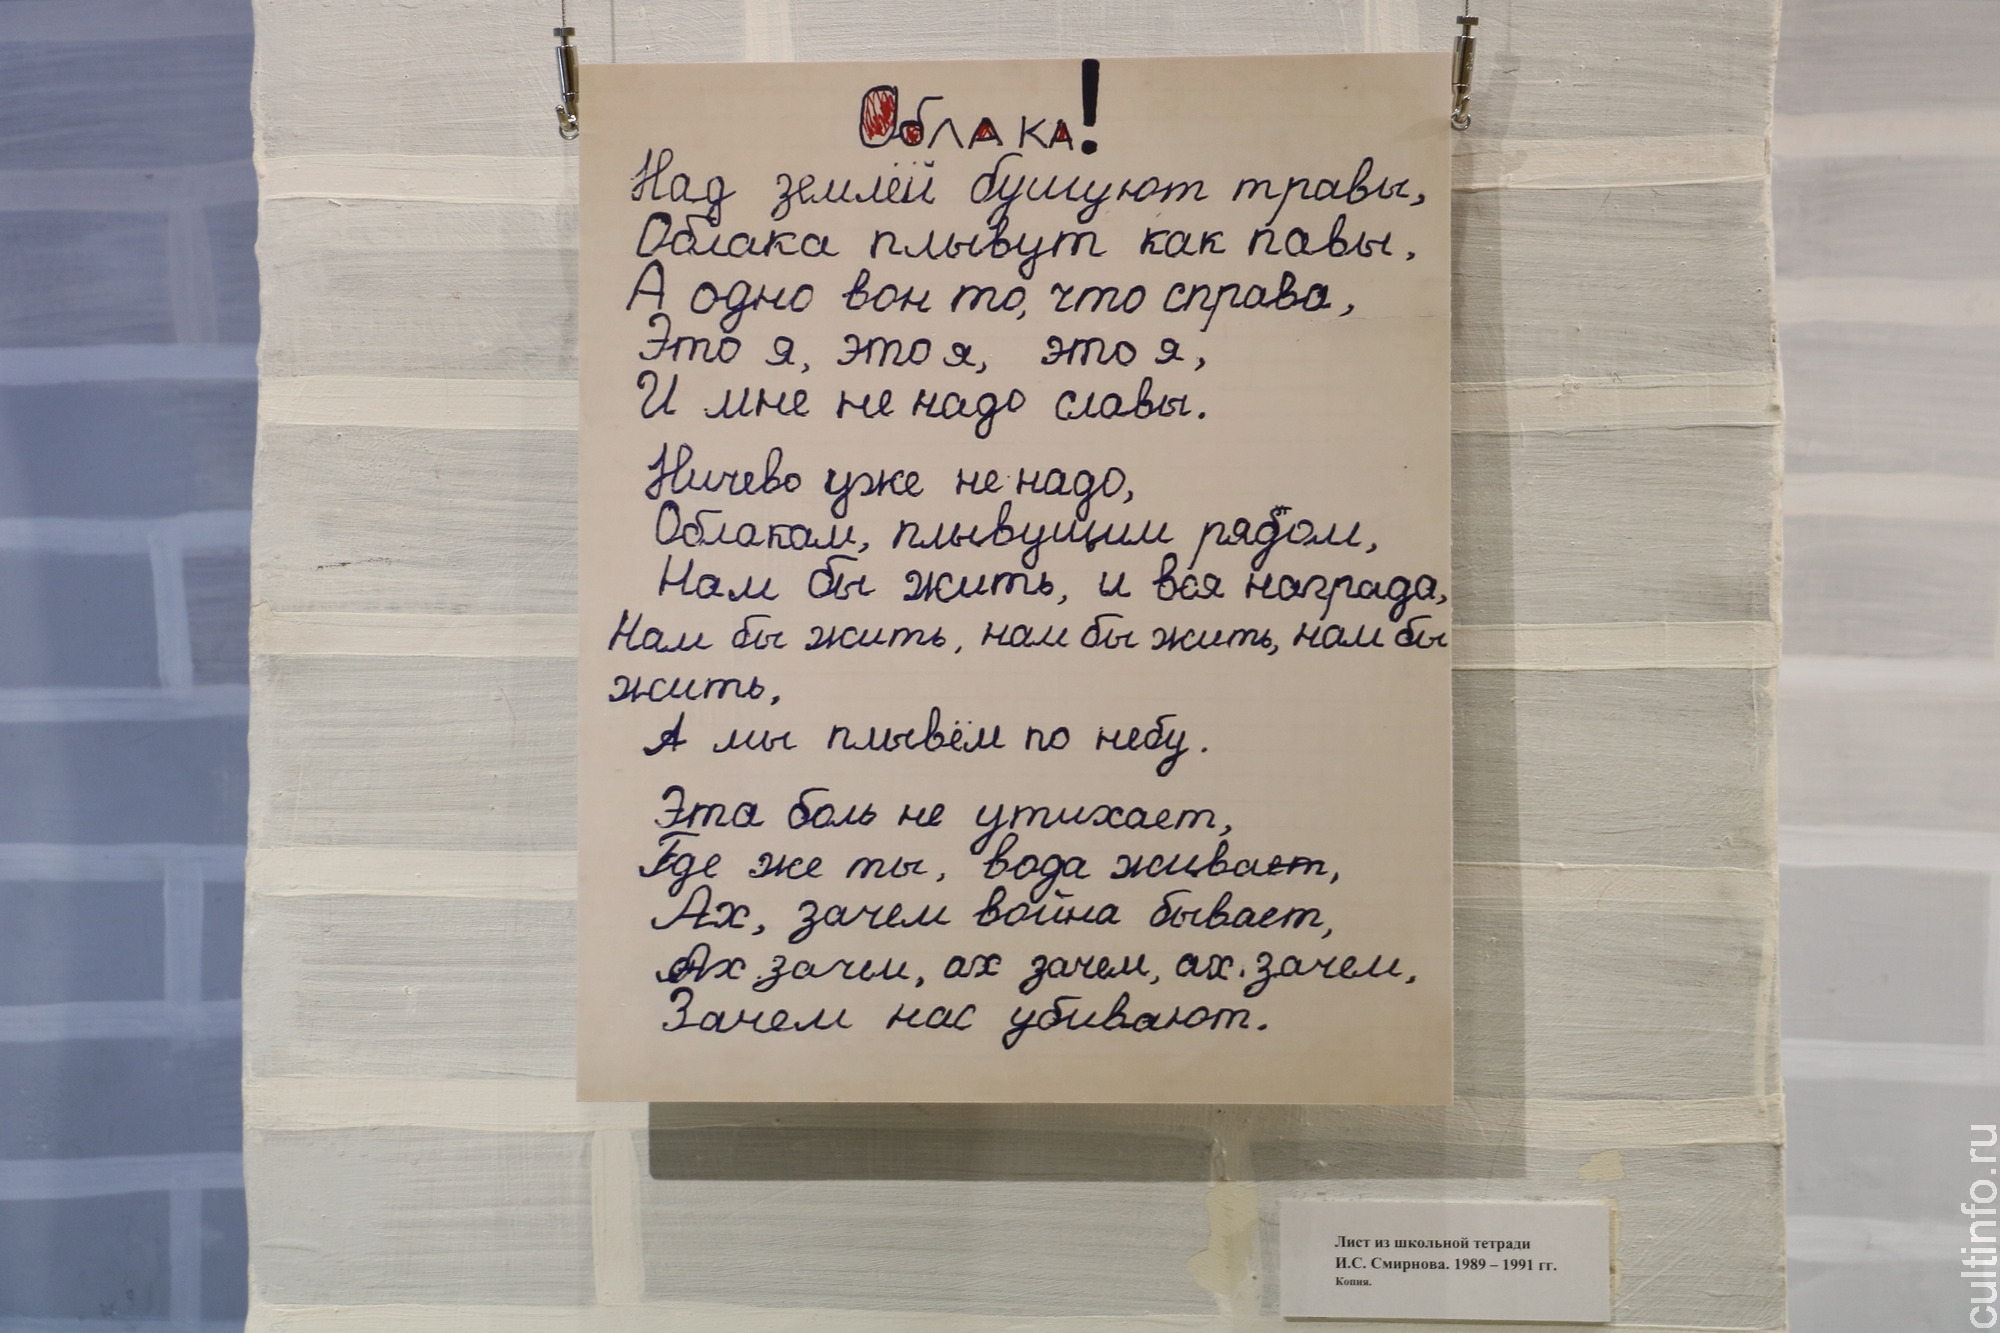 Облака!
Над землёй бушуют травы,
Облака плывут как павы.
А одно вон то, что справа,
Это я, это я, это я,
И мне не надо славы.
Ничево уже не надо,
Облакам, плывущим рядом,
Нам бы жить, и вся награда,
Нам бы жить, нам бы жить, нам бы
жить,
А мы плывём по небу.
Эта боль не утихает,
Где же ты, вода живает,
Ах, зачем война бывает,
Ах зачем, ах зачем, ах зачем,
Зачем нас убивают.
Лист из школьной тетради
И.С. Смирнова. 1989 – 1991 гг.
Копия.
cultinfo.ru